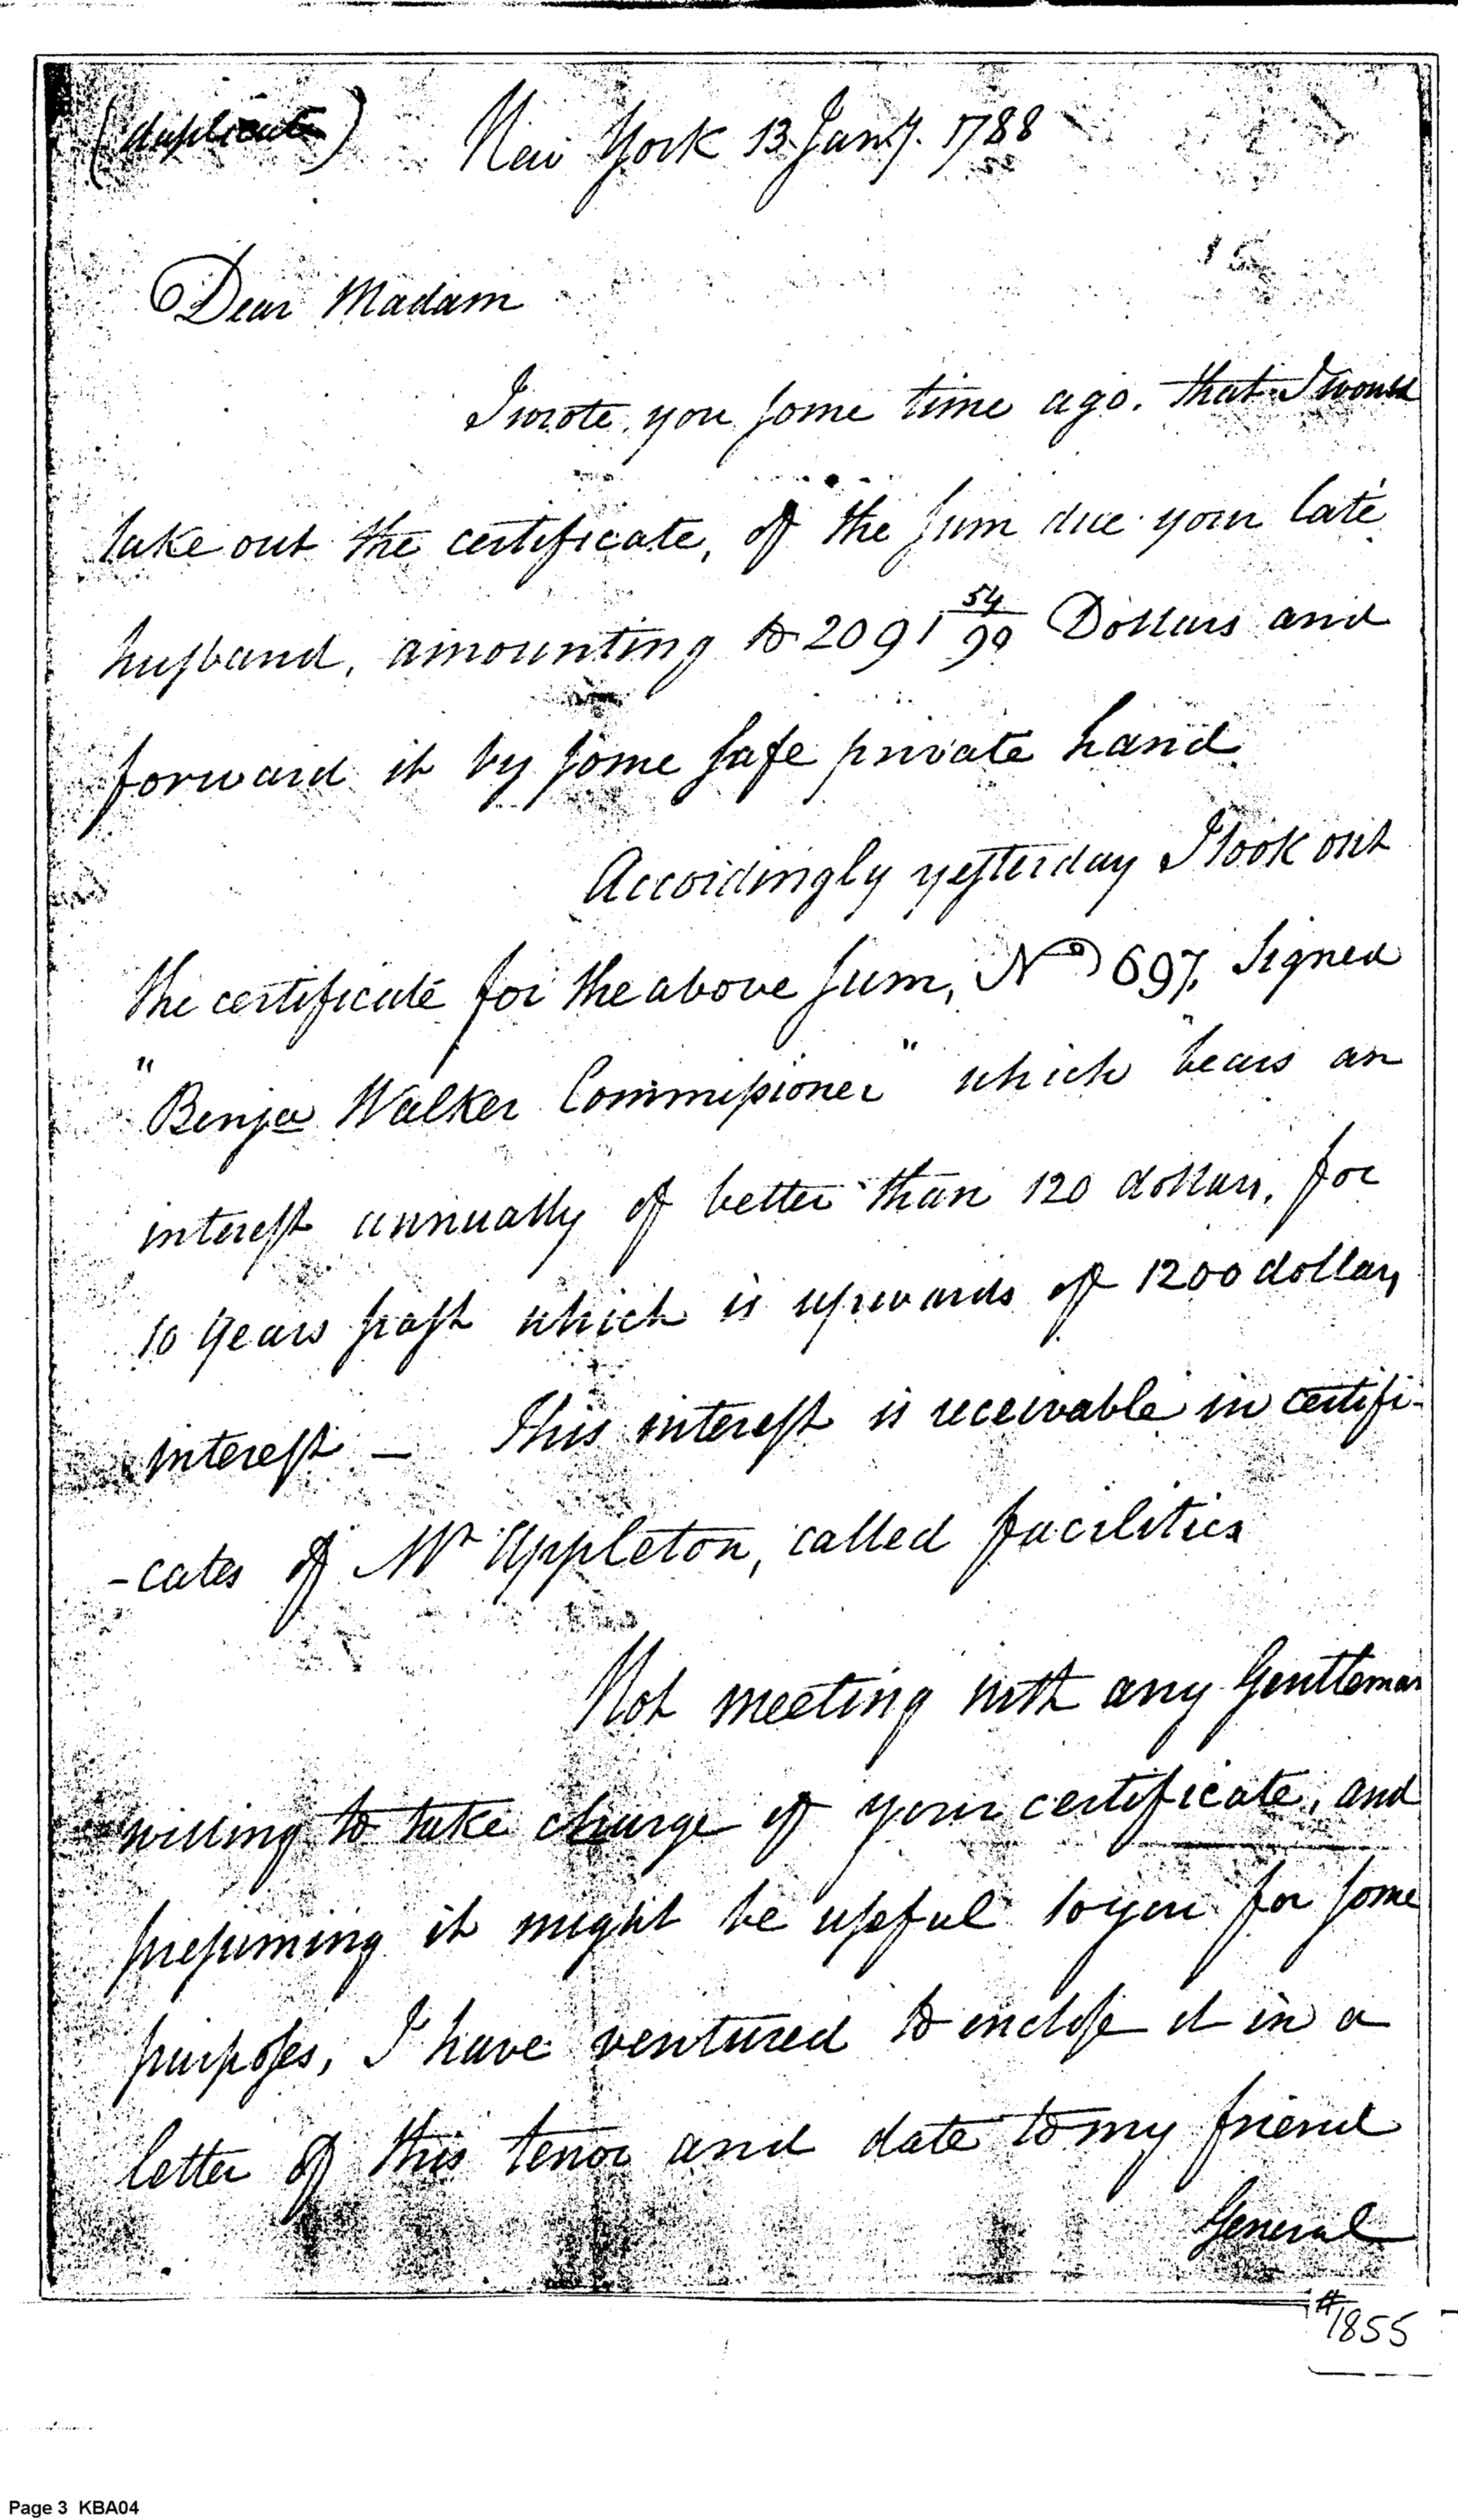 (duplicate) New York 13. Jany. 1788
Dear Madam
I wrote you some time ago. that I would
take out the certificate, of the sum due your late
husband, amounting to 2091 54/90 Dollars and
forward it by some safe private hand
Accordingly yesterday I took out
the certificate for the above sum, No 697, signed
"Benja Walker Commissioner" which bears an
interest annually of better than 120 dollars, for
10 years past which is upwards of 1200 dollars
interest — This interest is receivable in certifi-
-cates of Mr Appleton, called facilities
Not meeting with any Gentleman
willing to take charge of your certificate, and
presuming it might be useful to you for some
purposes, I have ventured to enclose it in a
letter of this tenor and date to my friend
General
#1855
Page 3 KBA04